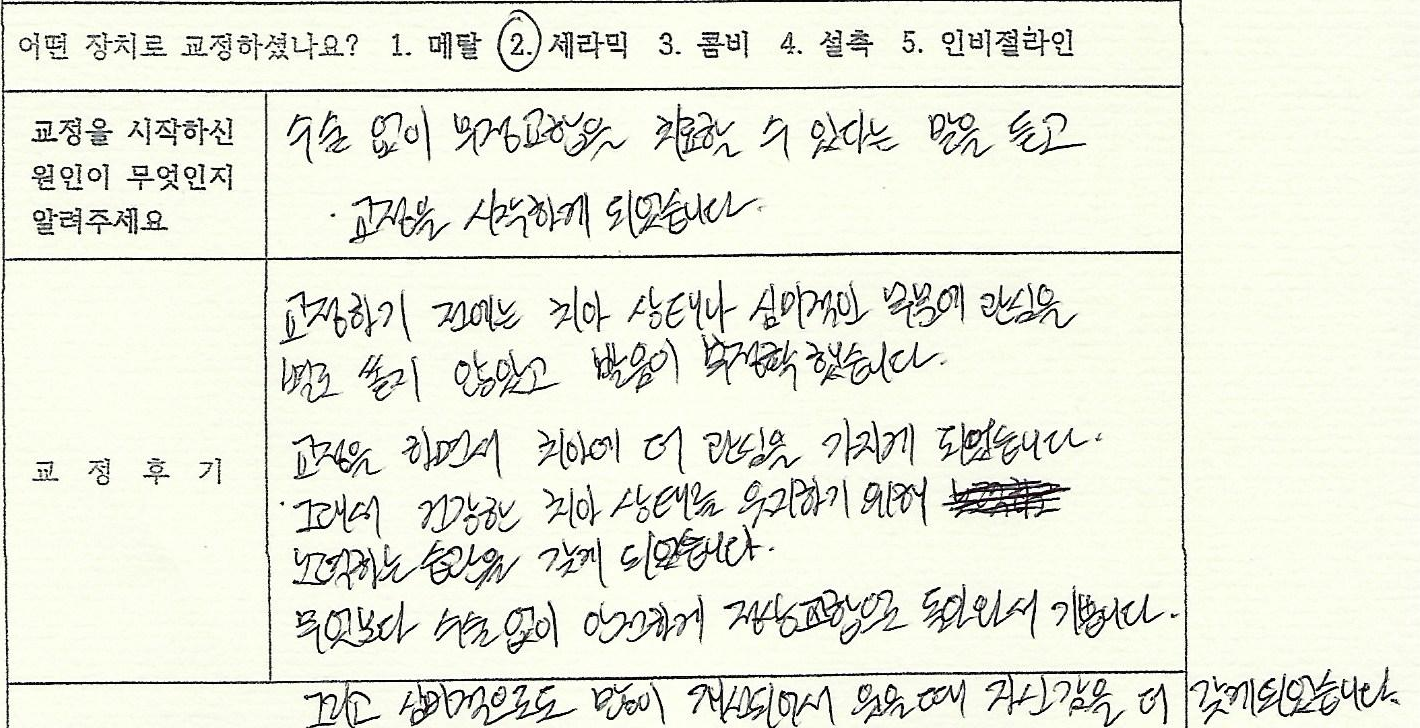 어떤 장치로 교정하셨나요? 1. 메탈 2. 세라믹 3. 콤비 4. 설측 5. 인비절라인
교정을 시작하신
원인이 무엇인지
알려주세요
수술 없이 부정교합을 치료할 수 있다는 말을 듣고
교정을 시작하게 되었습니다.
교 정 후 기
교정하기 전에는 치아 상태나 심미적인 부분에 관심을
별로 쏟지 않았고 발음이 부정확했습니다.
교정을 하면서 치아에 더 관심을 가지게 되었습니다.
그래서 건강한 치아 상태를 유지하기 위해
노력하는 습관을 갖게 되었습니다.
무엇보다 수술없이 안전하게 정상교합으로 돌아와서 기쁩니다.
그리고 심미적으로도 많이 개선되어서 웃을 때 자신감을 더 갖게되었습니다.